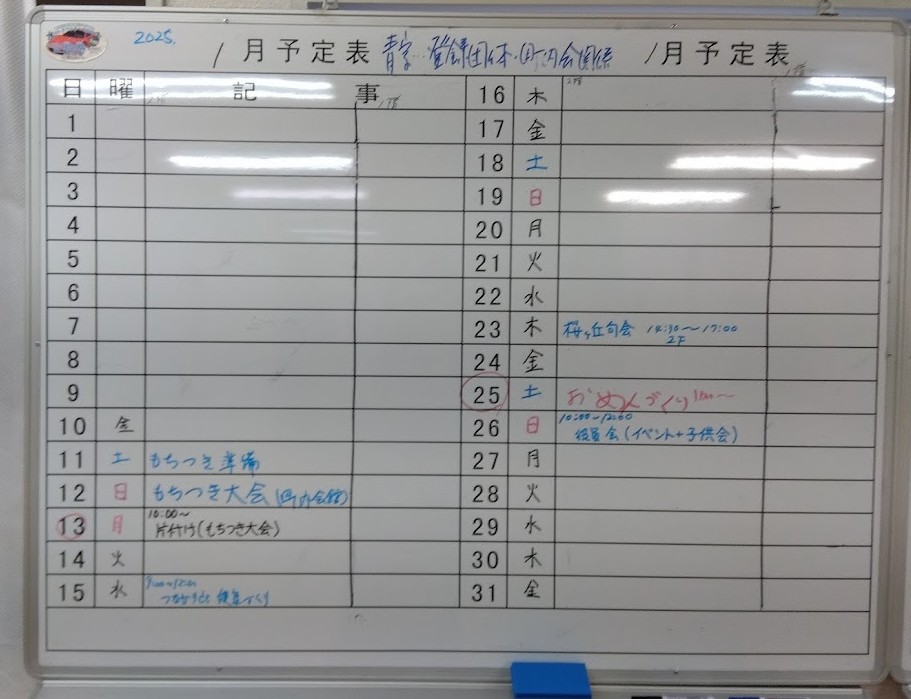 2025.
1月予定表 青字…登録団体・町内会関係 1月予定表
日 曜 記 事
1
2
3
4
5
6
7
8
9
10 金
11 土 もちつき準備
12 日 もちつき大会(町内会館)
13 月 10:00〜
片付け(もちつき大会)
14 火
15 水
16 木
17 金
18 土
19 日
20 月
21 火
22 水
23 木 桜ヶ丘句会 14:30〜17:00
2F
24 金
25 土 おめんづくり
26 日 10:00〜12:00
役員会(イベント+子供会)
27 月
28 火
29 水
30 木
31 金